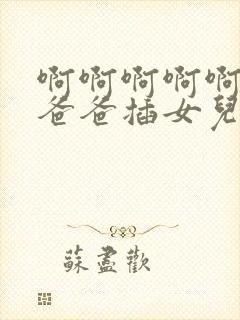 啊啊啊啊啊
爸爸插女兒
蘇盡歡